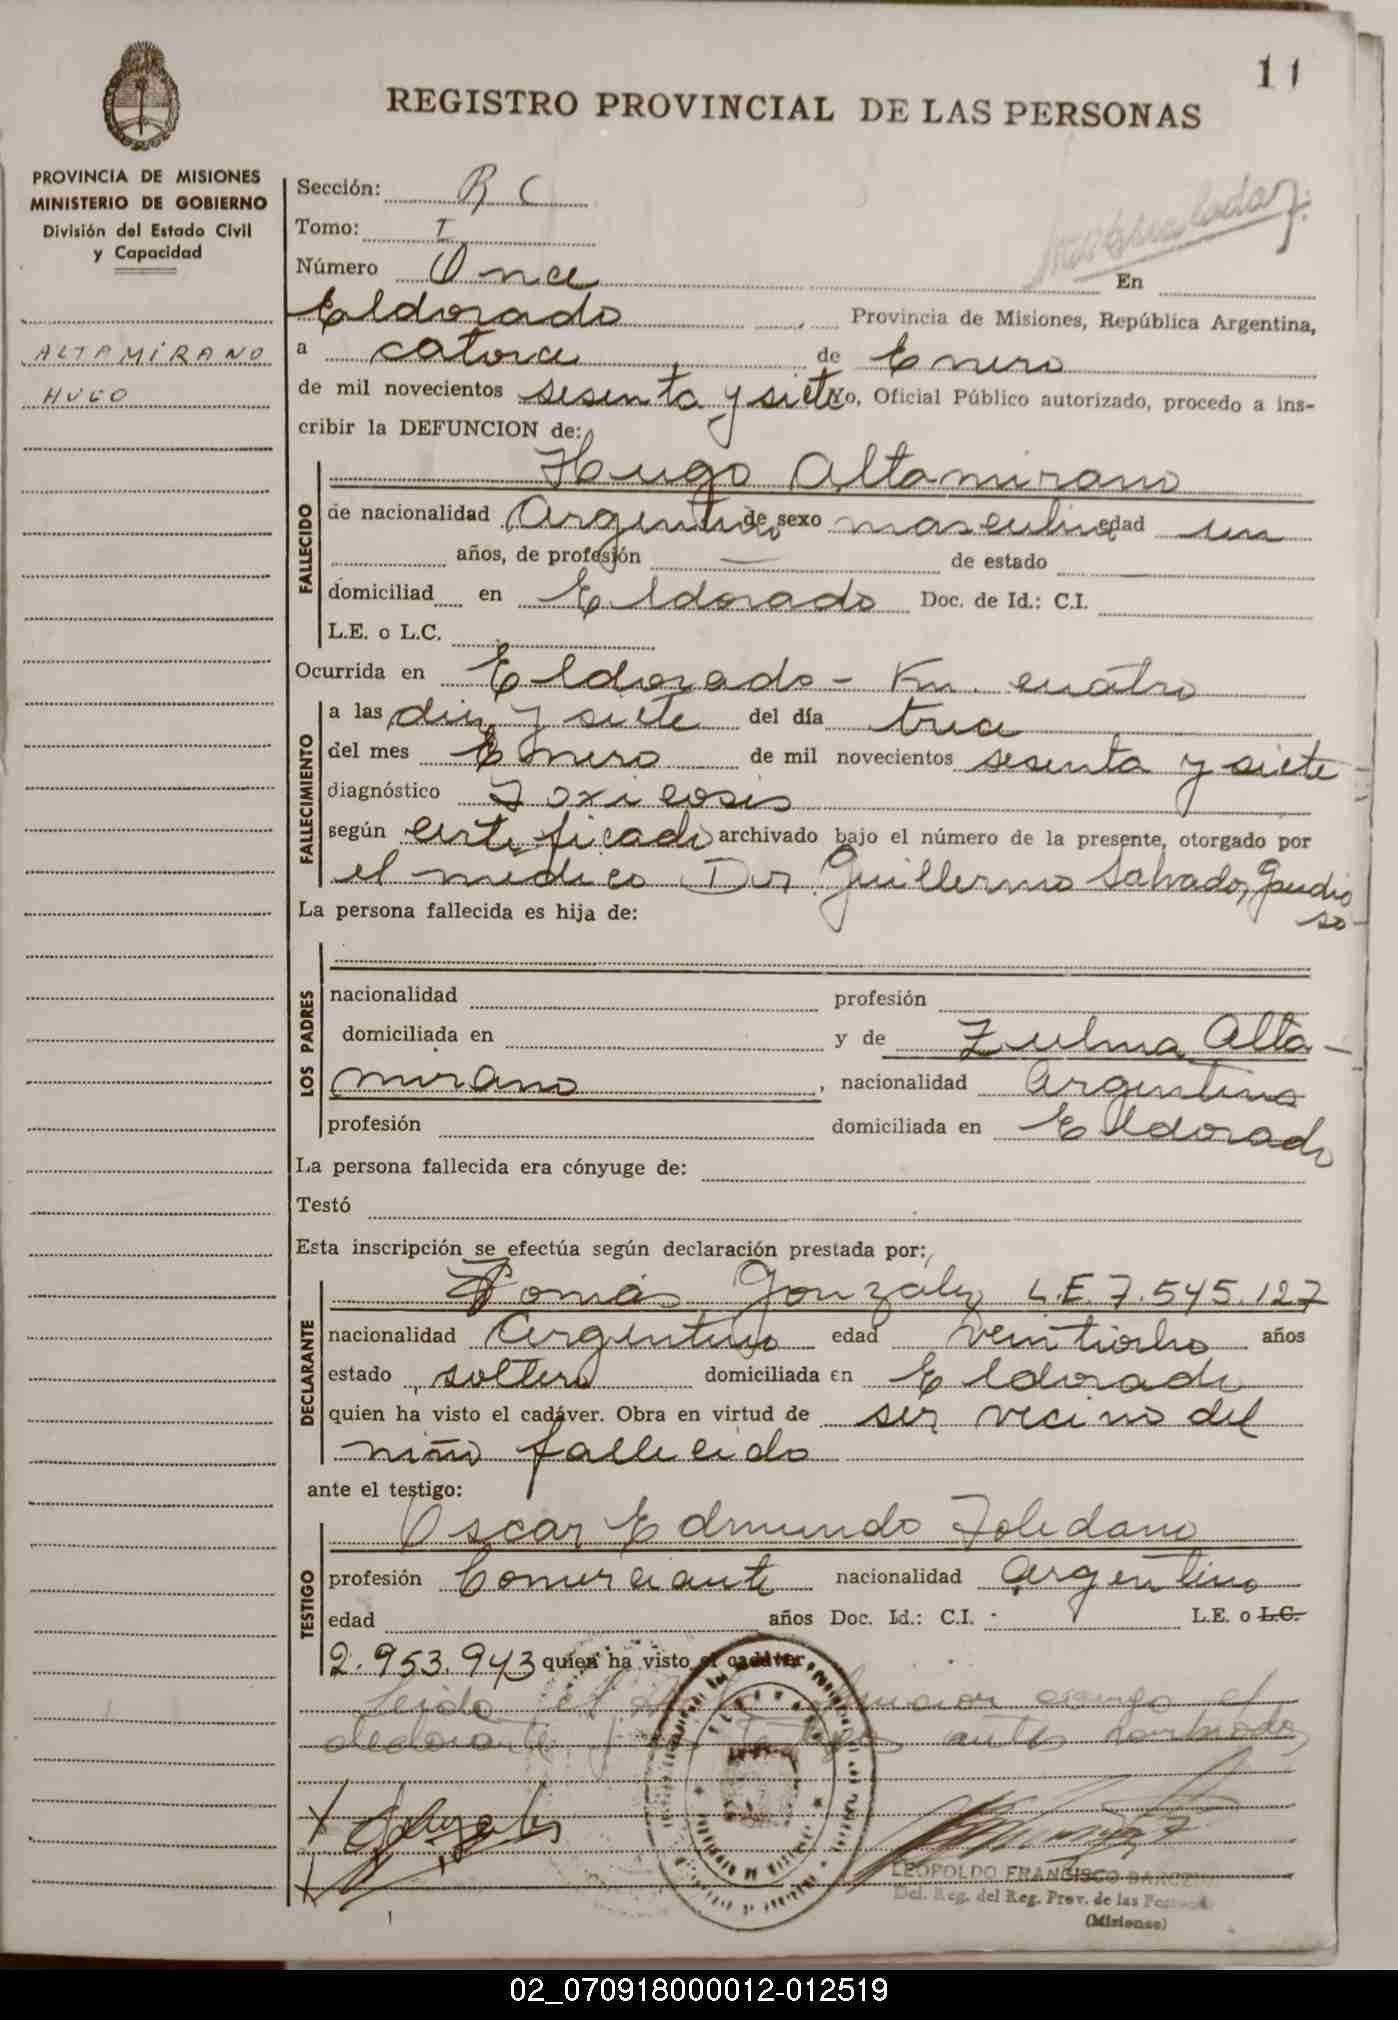 11
REGISTRO PROVINCIAL DE LAS PERSONAS
PROVINCIA DE MISIONES
MINISTERIO DE GOBIERNO
División del Estado Civil
y Capacidad
ALTAMIRANO
HUGO
Sección: R C
Tomo: I
Número Once En
Eldorado Provincia de Misiones, República Argentina,
a catorce de Enero
de mil novecientos sesenta y siete Yo, Oficial Público autorizado, procedo a ins-
cribir la DEFUNCION de:
Hugo Altamirano
FALLECIDO
de nacionalidad Argentino de sexo masculino edad un
años, de profesión — de estado
domiciliad en Eldorado Doc. de Id.: C.I.
L.E. o L.C.
Ocurrida en Eldorado - Km. cuatro
FALLECIMIENTO
a las diez y siete del día trece
del mes Enero de mil novecientos sesenta y siete -
diagnóstico Toxicosis
según certificado archivado bajo el número de la presente, otorgado por
el medico Dr. Guillermo Salvador Gaudio
so -
La persona fallecida es hija de:
LOS PADRES
nacionalidad profesión
domiciliada en y de Zulma Alta-
mirano, nacionalidad argentina
profesión domiciliada en Eldorado
La persona fallecida era cónyuge de:
Testó
Esta inscripción se efectúa según declaración prestada por:
DECLARANTE
Tomás Gonzalez L.E. 7.545.127
nacionalidad Argentino edad veintiocho años
estado soltero domiciliada en Eldorado
quien ha visto el cadáver. Obra en virtud de ser vecino del
niño fallecido
ante el testigo:
TESTIGO
Oscar Edmundo Toledano
profesión Comerciante nacionalidad Argentino
edad años Doc. Id.: C.I. - L.E. o L.C.
2.953.943 quien ha visto el cadáver
Leida el Acta firman conmigo el
declarante y testigo antes nombrados
LEOPOLDO FRANCISCO
Del. Reg. del Reg. Prov. de las Personas
(Misiones)
02_070918000012-012519